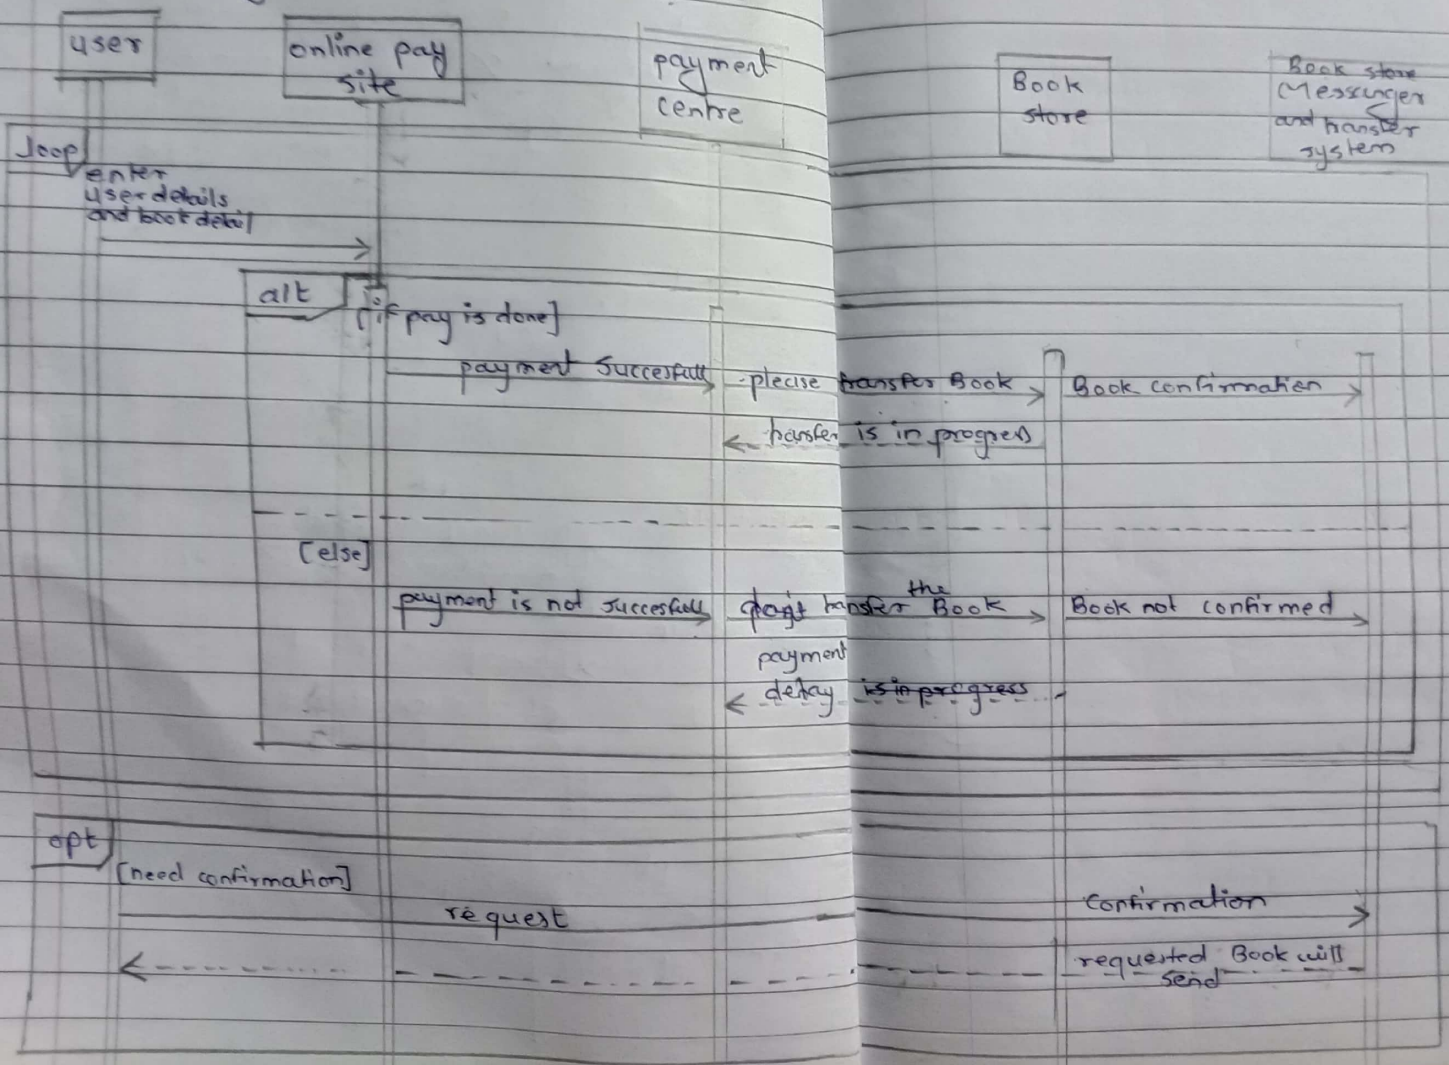 user
online pay
site
payment
centre
Book
store
Book store
Messenger
and transfer
system
loop
enter
user details
and book detail
alt
[if pay is done]
payment succesfull
please transfer Book
Book confirmation
transfer is in progress
[else]
payment is not succesfull
don't transfer the Book
Book not confirmed
payment
delay is in progress
opt
[need confirmation]
request
confirmation
requested Book will
send